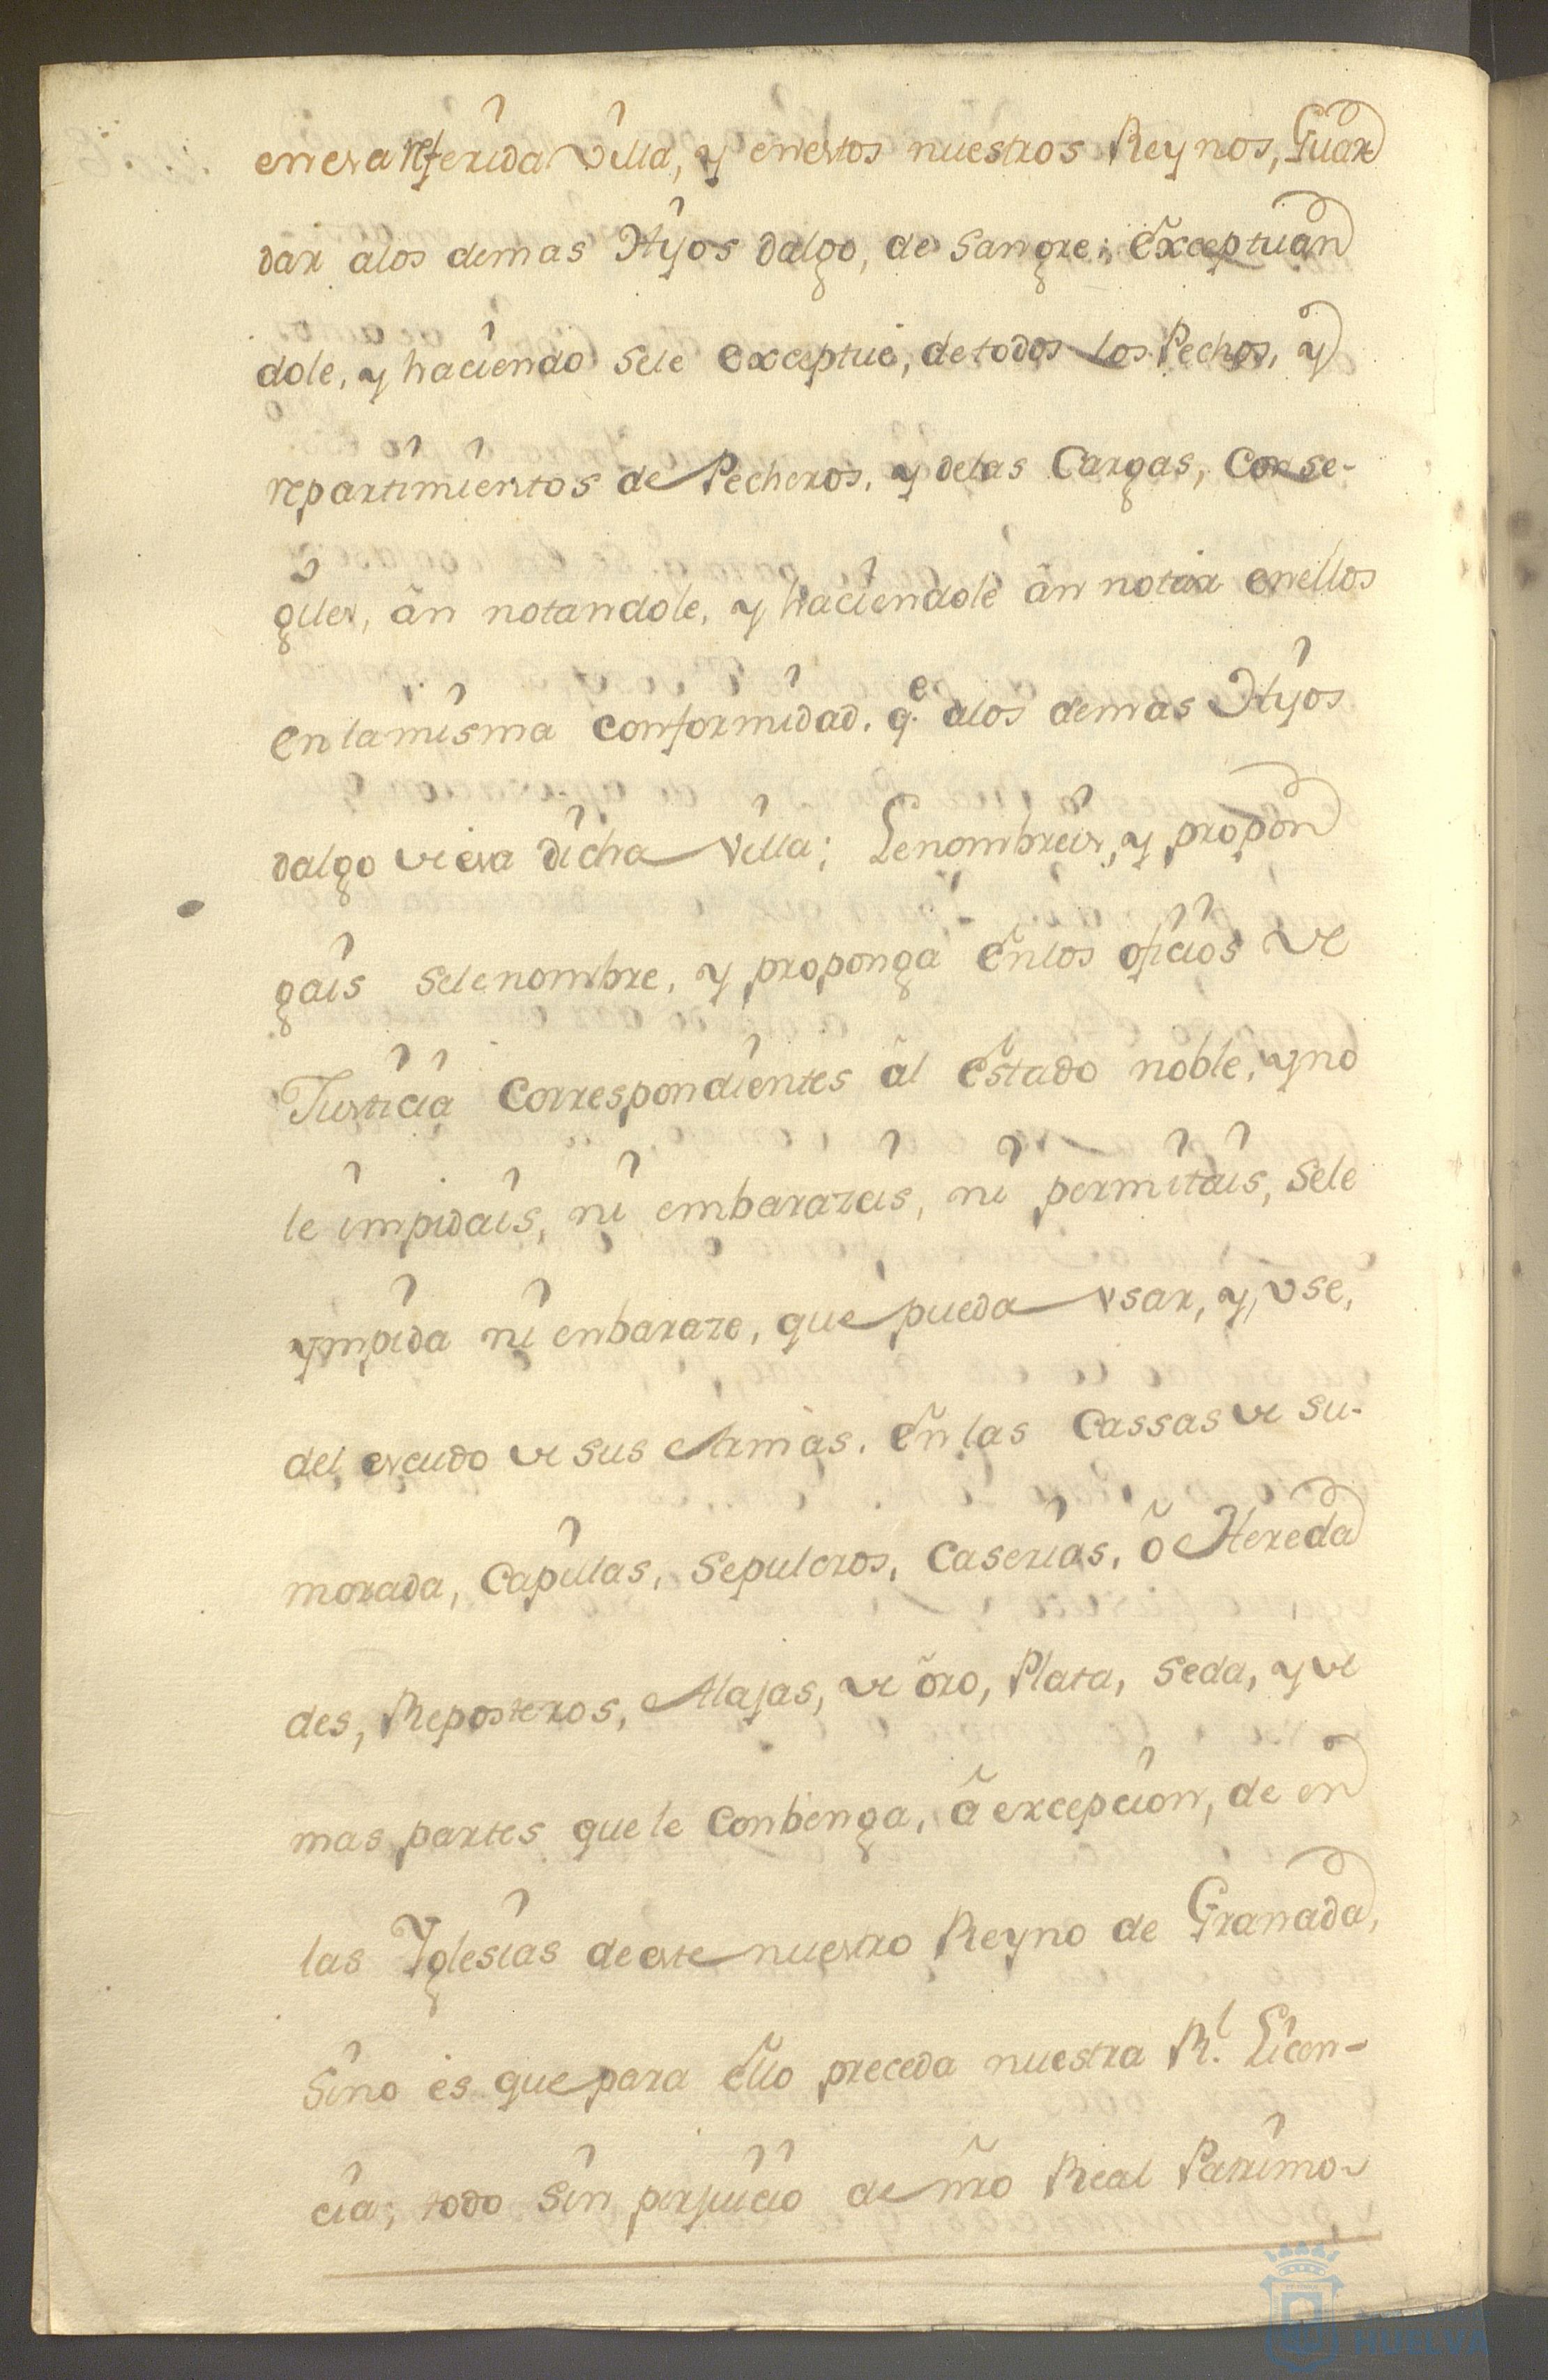 en esa referida Villa, y en estos nuestros Reynos, Guar
dar alos demas Hijos dalgo, de Sangre; Exceptuan
dole, y haciendo sele exceptue, de todos los Pechos, y
repartimientos de Pecheros, y delas Cargas, Conse-
giles, an notandole, y haciendole an notar en ellos
en la misma Conformidad, qe. alos demas Hijos
dalgo de esa dicha Villa; Le nombreis, y propon
gais sele nombre, y proponga en los oficios de
Justicia Correspondientes al Estado noble, y no
le impidais, ni embarazeis, ni permitais, sele
ympida ni enbaraze, que pueda vsar, y vse,
del escudo de sus Armas, en las Cassas de su-
morada, Capillas, Sepulcros, Caserias, o Hereda
des, Reposteros, Alajas, de oro, Plata, Seda, y de
mas partes que le Conbenga, a excepcion, de en
las Yglesias de este nuestro Reyno de Granada,
Sino es que para ello preceda nuestra Rl. Licen-
cia; todo Sin perjuicio de nro Real Patrimo-
HUELVA